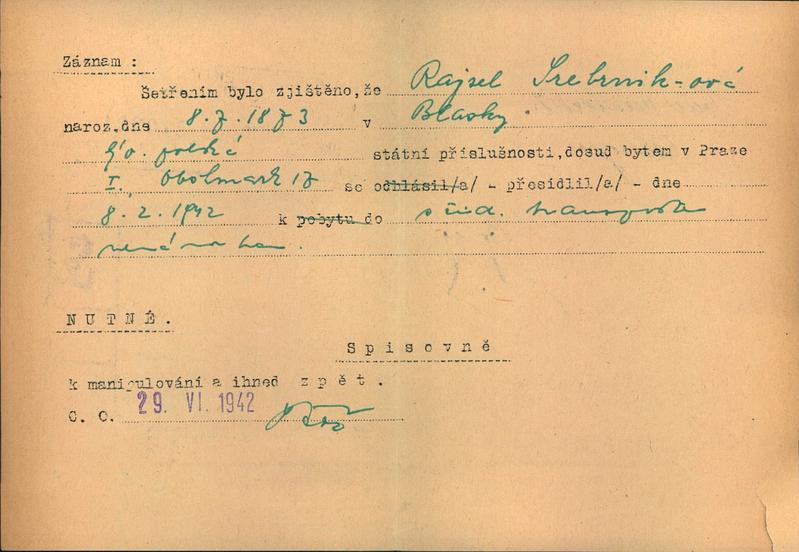 Záznam :
Šetřením bylo zjištěno, že Rajsel Srebrnik-ová
naroz. dne 8.7.1873 v Blasky
polská státní příslušnosti, dosud bytem v Praze
I., 17 se odhlásil/a/ - přesídlil/a/ - dne
8.2.1942 k pobytu do žid. transportu
NUTNÉ.
Spisovně
k manipulování a ihned zpět.
C. O. 29. VI. 1942